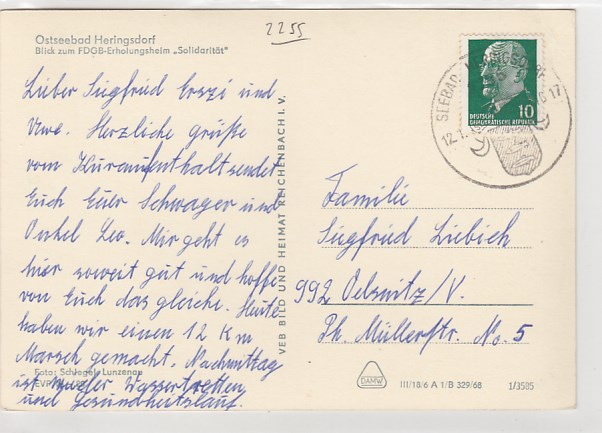 2255
Ostseebad Heringsdorf
Blick zum FDGB-Erholungsheim „Solidarität"
Lieber Siegfried Erszi und
Uwe. Herzliche grüße
vom Kuraufenthalt sendet
Euch Euer Schwager und
Onkel Leo. Mir geht es
hier soweit gut und hoffe
von Euch das gleiche. Heute
haben wir einen 12 Km
Marsch gemacht. Nachmittag
ist wieder Wassertretten
und Gesundheitslauf.
Foto: Schlegel, Lunzenau
EVP
VEB BILD UND HEIMAT REICHENBACH I. V.
SEEBAD HERINGSDORF
12.1.
17
10
DEUTSCHE
DEMOKRATISCHE REPUBLIK
Familie
Siegfried Liebich
992 Oelsnitz/V.
Ph. Müllerstr. No. 5
DAMW
III/18/6 A 1/B 329/68
1/3585